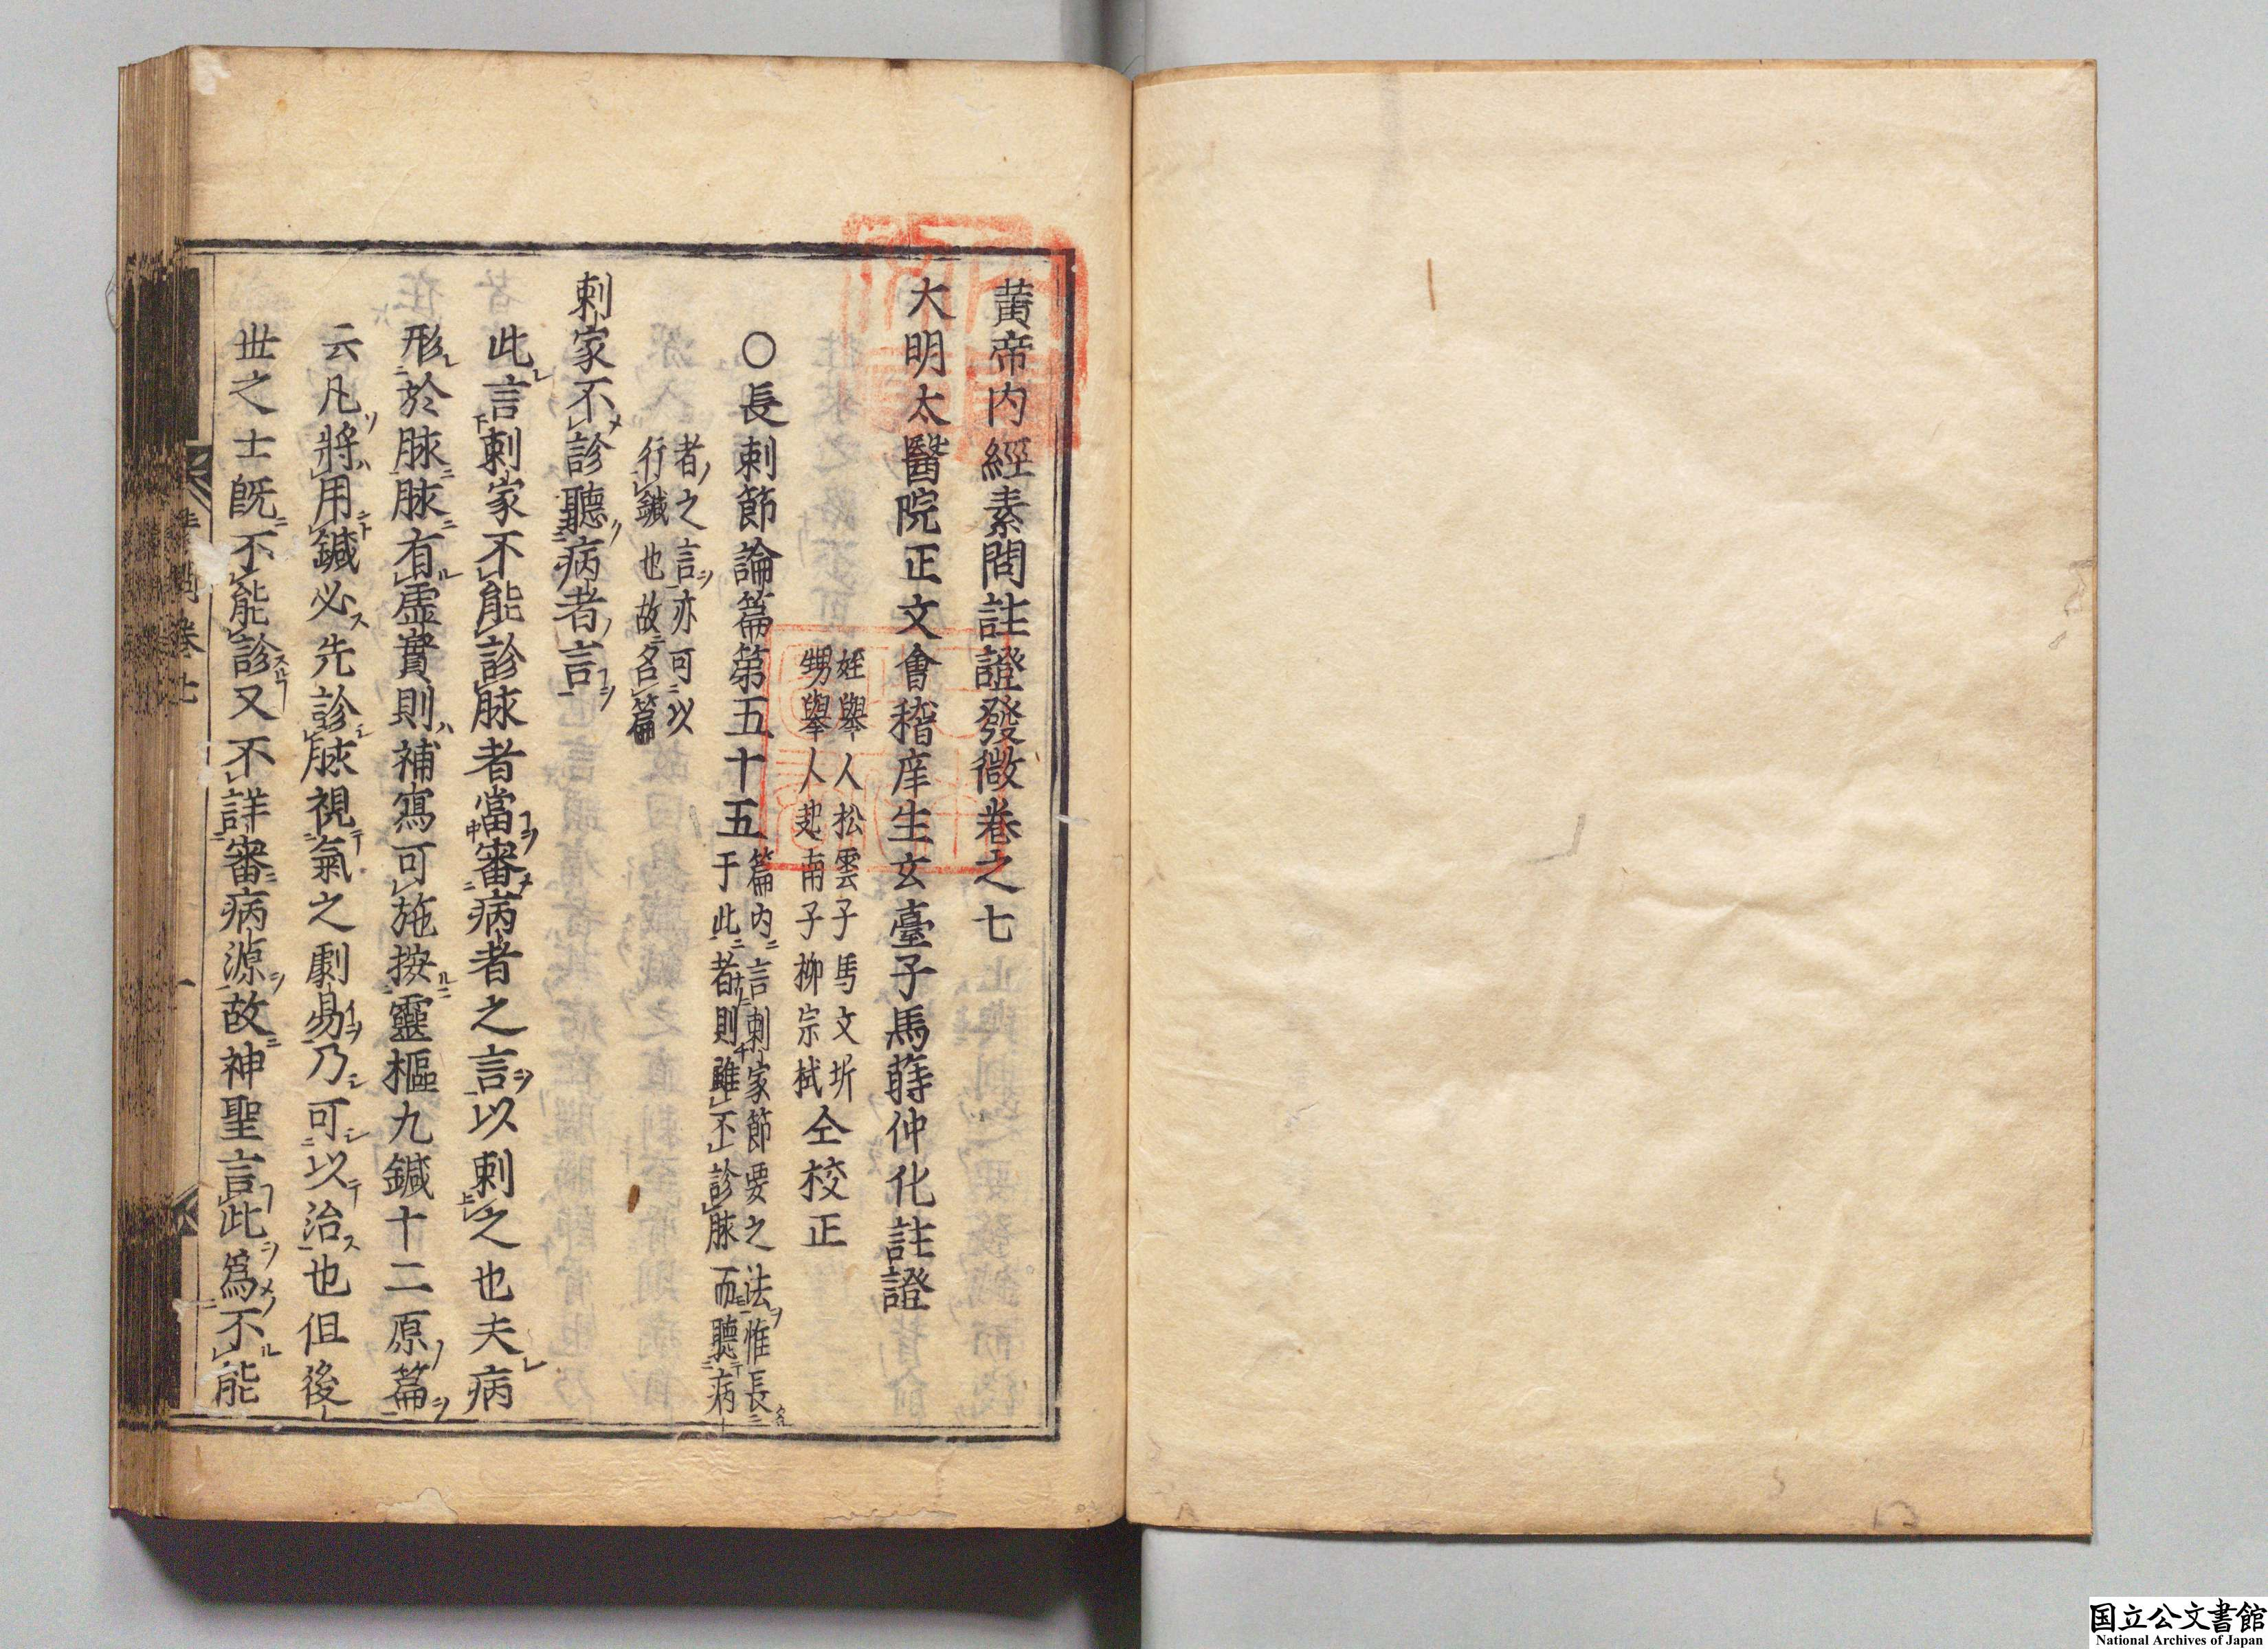 黄帝内經素問註證發微卷之七
大明太醫院正文會稽庠生玄臺子馬蒔仲化註證
姪舉人松雲子馬文圻
甥舉人起南子柳宗栻
仝校正
○長刺節論篇第五十五
篇内言刺家節要之法惟長
于此者則雖不診脉而聽病
者之言亦可以
行鍼也故名篇
刺家不診聽病者言
此言刺家不能診脉者當審病者之言以刺之也夫病
形於脉脉有虚實則補瀉可施按靈樞九鍼十二原篇
云凡將用鍼必先診脉視氣之劇易乃可以治也但後
世之士既不能診又不詳審病源故神聖言此爲不能
素問卷七
一
国立公文書館
National Archives of Japan